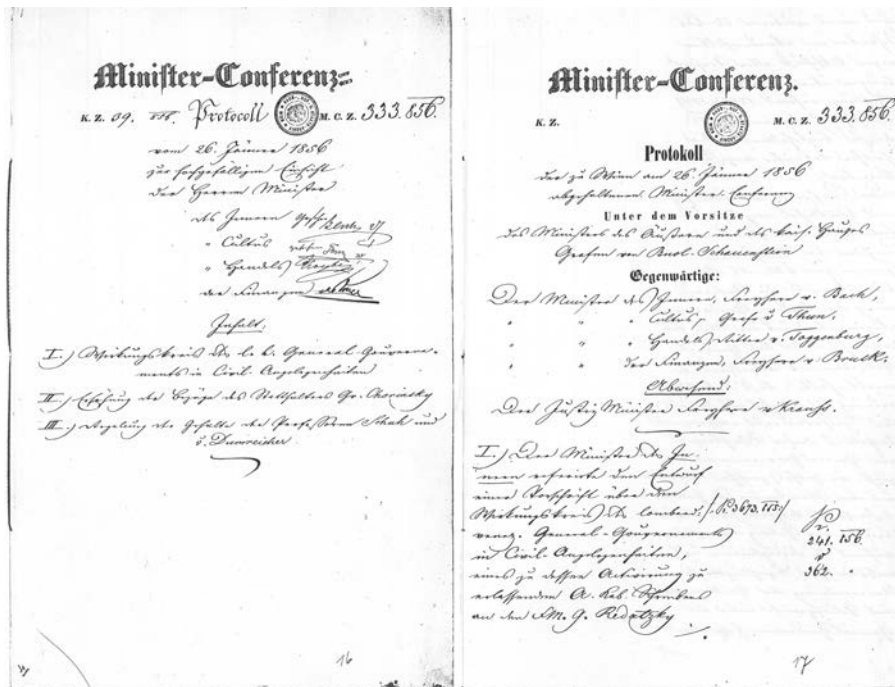 Minister-Conferenz.
K. Z. 09. Protocoll M. C. Z. 333. 856.
vom 26. Jänner 1856
zur hochgefälligen Einsicht
der Herren Minister
des Innern Bach
" Cultus
" Handels
der Finanzen
Inhalt,
I.) Wirkungskreis des l. v. General-Gouverne-
ments in Civil-Angelegenheiten
II.) Erhöhung der Bezüge des Statthalters Gr. Chorinsky
III.) Regelung der Gehalte der Professoren Schuh und
v. Dumreicher
16
Minister-Conferenz.
K. Z. M. C. Z. 333. 856.
Protokoll
der zu Wien am 26. Jänner 1856
abgehaltenen Minister-Conferenz
Unter dem Vorsitze
des Ministers des Äussern und des kais. Hauses
Grafen von Buol-Schauenstein
Gegenwärtige:
Der Minister des Innern, Freyherr v. Bach,
" " " Cultus, Graf v. Thun,
" " " Handels, Ritter v. Toggenburg,
" " der Finanzen, Freyherr v. Bruck.
Abwesend,
Der Justiz Minister Freyherr v. Krauß.
I.) Der Minister des In-
nern referirte den Entwurf
einer Vorschrift über den
Wirkungskreis des lombard.
venez. General-Gouvernements
in Civil-Angelegenheiten,
eines zu dessen Activirung zu
erlassenden A. Kab. Schreibens
an den FM. G. Radetzky
241. 156.
362. "
17